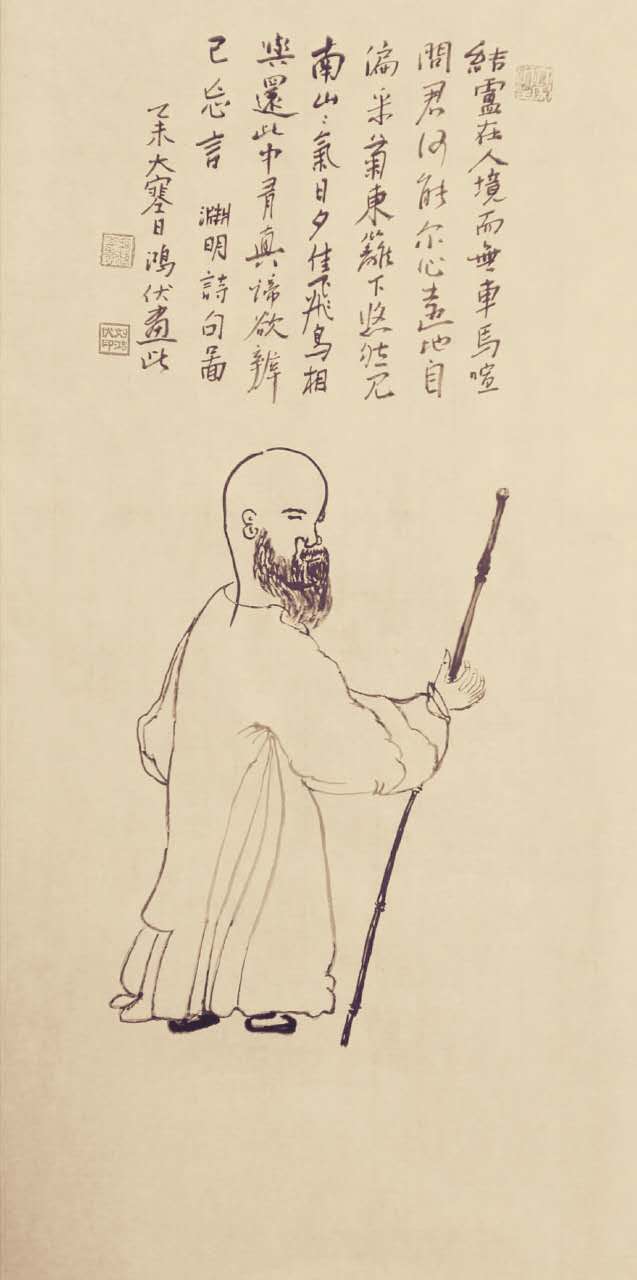 結盧在人境而無車馬喧
問君何能尔心遠地自
偏采菊東籬下悠然见
南山〻氣日夕佳飛鳥相
與還此中有真諦欲辨
已忘言 淵明詩句圖
乙未大寒日鴻伏畫此